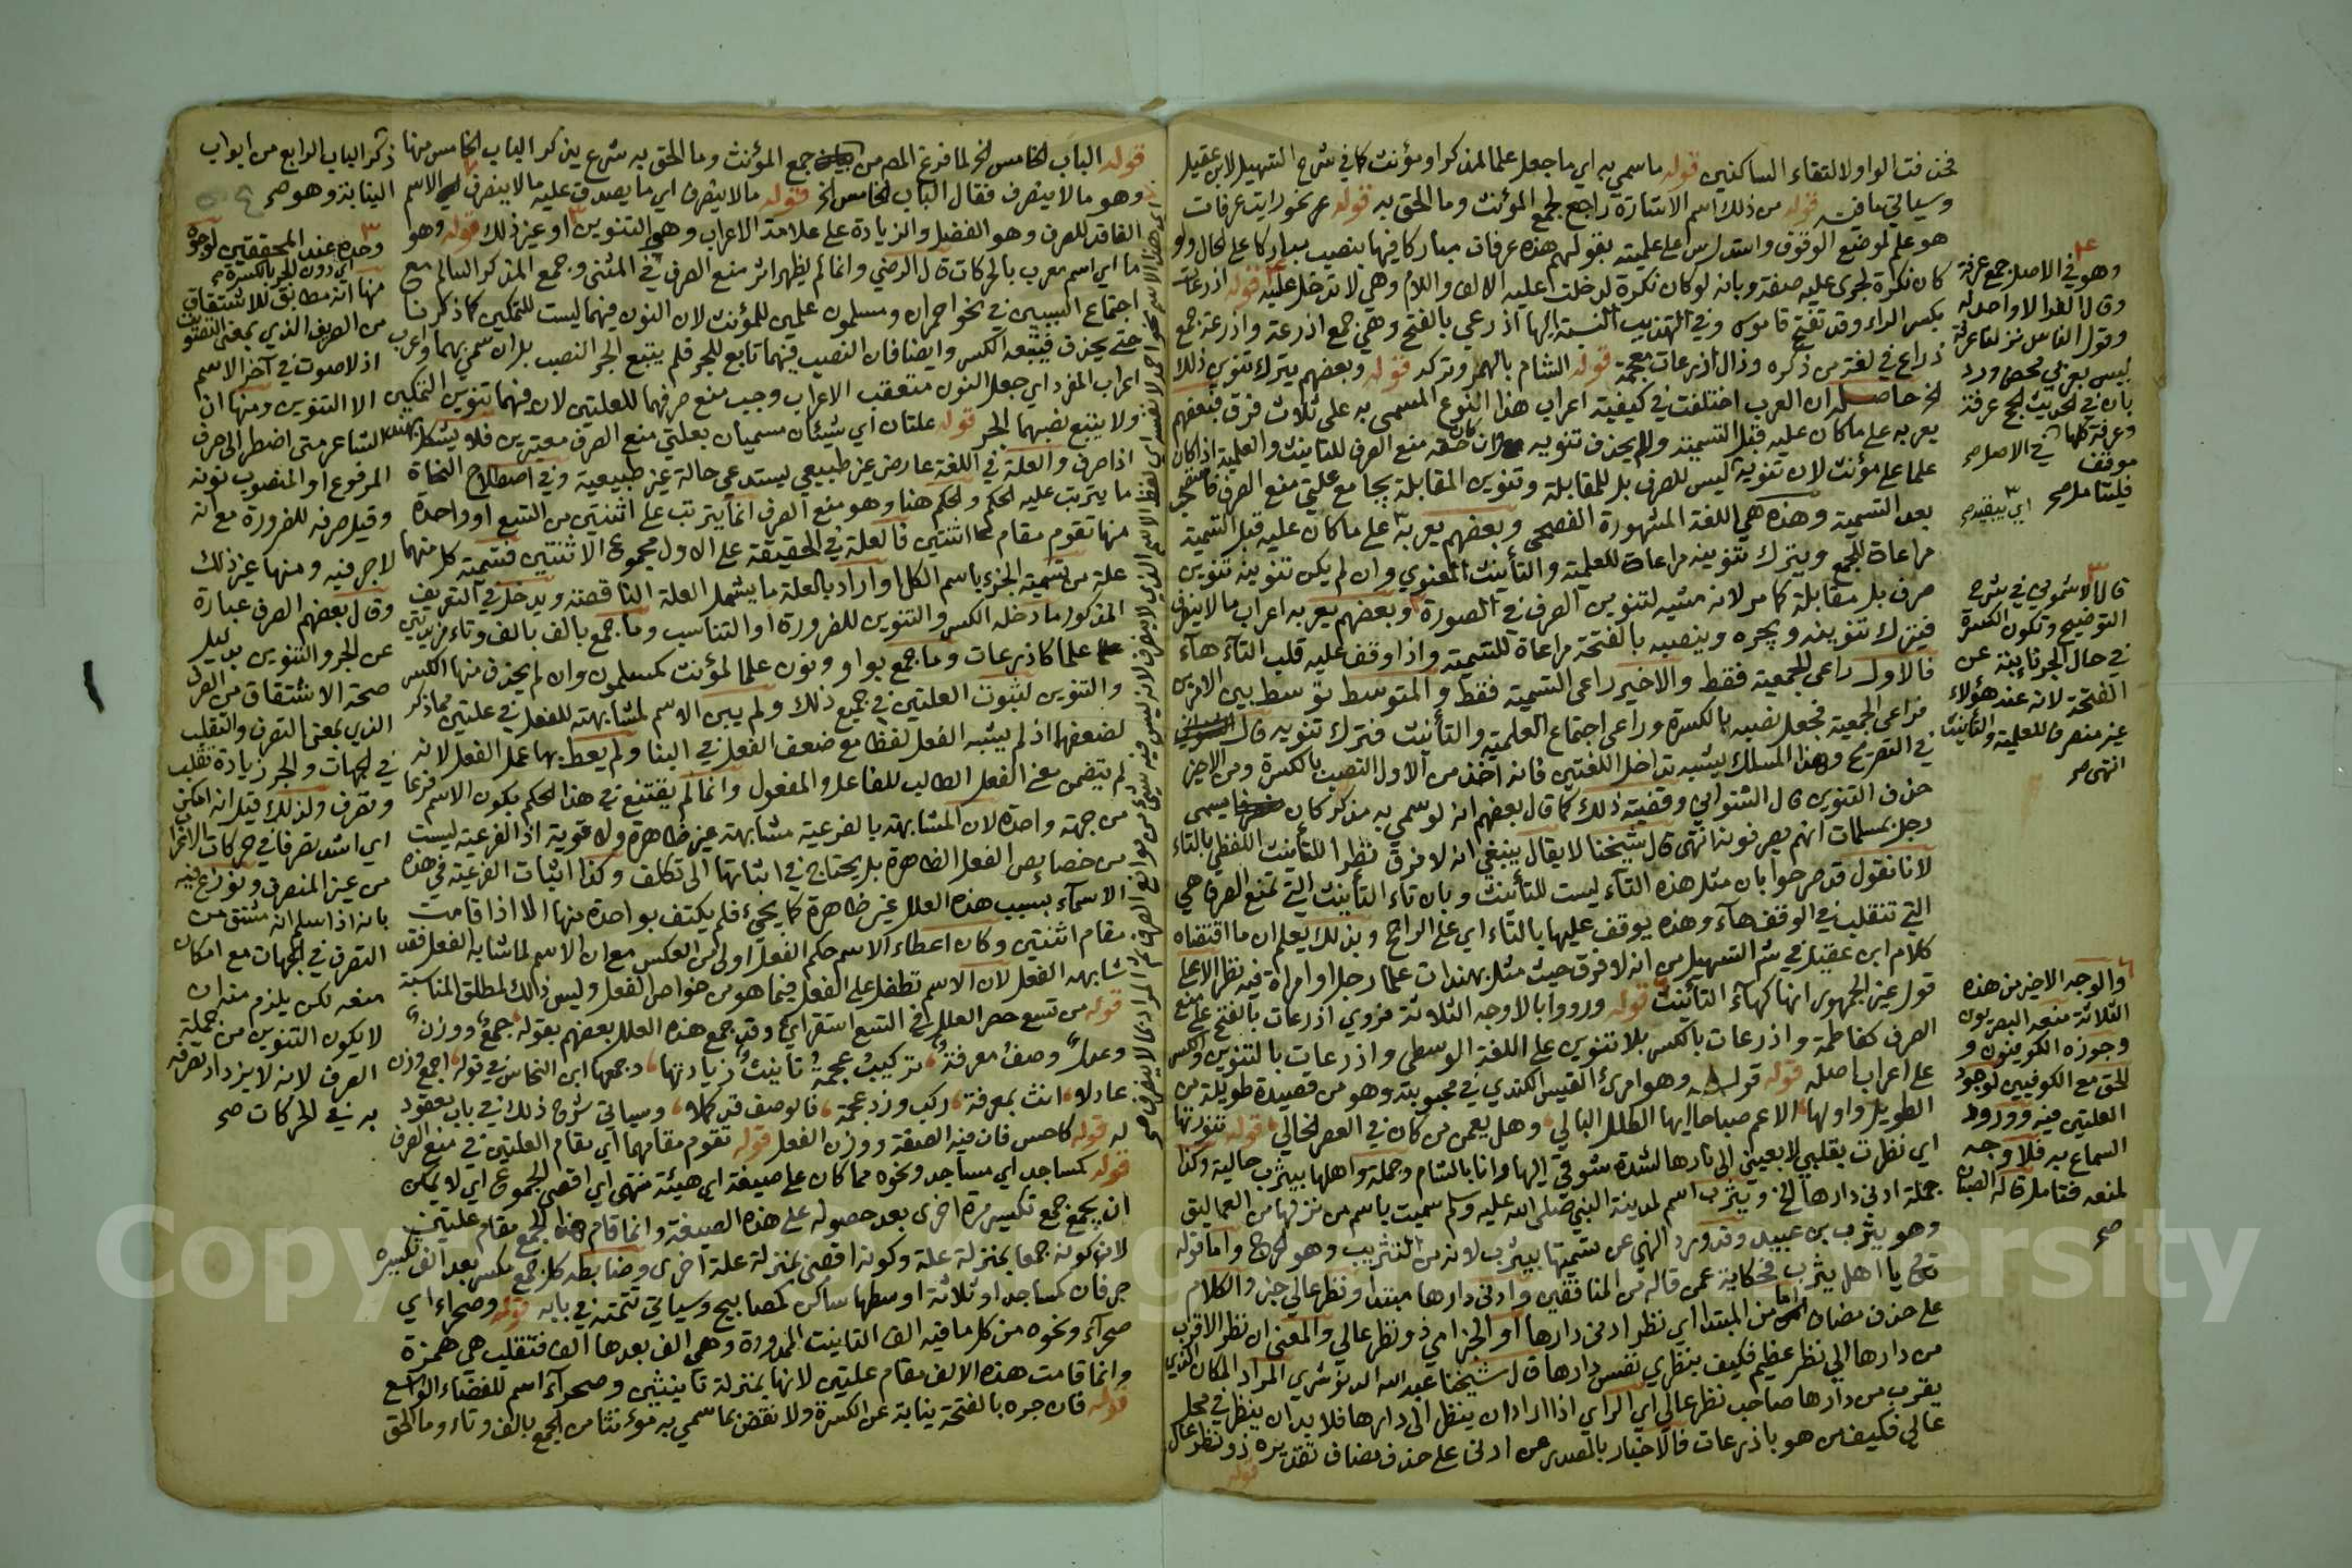 فحذفت الواو لالتقاء الساكنين قوله ما سمي به اي ما جعل علما لمذكر او مؤنث كما في شرح التسهيل لابن عقيل
وسياتي ما فيه قوله من ذلك اسم الاشارة راجع لجمع المؤنث وما الحق به قوله عرفات نحو رايت عرفات
هو علم لموضع الوقوف واستدل س على علميته بقولهم هذه عرفات مباركا فيها بنصب مباركا على الحال ولو
كان نكرة لجرى عليه صفة وبانه لو كان نكرة لدخلت عليه الالف واللام وهي لا تدخل عليه قوله اذرعات
بكسر الراء وقد تفتح قاموس وفي التهذيب النسبة اليها اذرعي بالفتح وهي جمع اذرعة واذرعة جمع
ذراع في لغة من ذكره وذال اذرعات معجمة قوله الشام بالهمز وتركه قوله وبعضهم يترك تنوين ذلك
الخ حاصله ان العرب اختلفت في كيفية اعراب هذا النوع المسمى به على ثلاث فرق فبعضهم
يعربه على ما كان عليه قبل التسمية ولم يحذف تنوينه وان كان حقه منع الصرف للتانيث والعلمية اذا كان
علما على مؤنث لان تنوينه ليس للصرف بل للمقابلة وتنوين المقابلة يجامع علتي منع الصرف
بعد التسمية وهذه هي اللغة المشهورة الفصحى وبعضهم يعربه على ما كان عليه قبل التسمية
مراعاة للجمع ويترك تنوينه مراعاة للعلمية والتأنيث المعنوي وان لم يكن تنوينه تنوين
صرف بل مقابلة كما مر لانه مشبه لتنوين الصرف في الصورة وبعضهم يعربه اعراب ما لا ينصرف
فيترك تنوينه ويجره وينصبه بالفتحة مراعاة للتسمية واذا وقف عليه قلب التآء هآء
فالاول راعى الجمعية فقط والاخير راعى التسمية فقط والمتوسط توسط بين الامرين
فراعى الجمعية فجعل نصبه بالكسرة وراعى اجتماع العلمية والتأنيث فترك تنوينه قال
في التصريح وهذا المسلك يشبه تداخل اللغتين فانه اخذ من الاول النصب بالكسرة ومن الاخير
حذف التنوين قال الشنواني وقضية ذلك كما قال بعضهم انه لو سمي به مذكر كان يسمى
رجل بمسلمات انهم يصرفونه انتهى قال شيخنا لا يقال ينبغي انه لا فرق نظرا للتأنيث اللفظي بالتاء
لانا نقول قد صرحوا بان مثل هذه التآء ليست للتأنيث وبان تاء التأنيث التي تمنع الصرف هي
التي تنقلب في الوقف هآء وهذه يوقف عليها بالتاء اي على الراجح وبذلك يعلم ان ما اقتضاه
كلام ابن عقيل في شرح التسهيل من انه لا فرق حيث مثل بهندات علما رجل او امراة فيه نظر الا على
قول غير الجمهور انها كهآء التأنيث قوله ورووا بالاوجه الثلاثة فروي اذرعات بالفتح على منع
الصرف كفاطمة واذرعات بالكسر بلا تنوين على اللغة الوسطى واذرعات بالتنوين والكسر
على اعراب اصله قوله قوله وهو امرئ القيس الكندي في محبوبته وهو من قصيدة طويلة من
الطويل واولها الا عم صباحا ايها الطلل البالي وهل يعمن من كان في العصر الخالي قوله تنورتها
اي نظرت بقلبي لا بعيني الى نارها لشدة شوقي اليها وانا بالشام وجملة واهلها بيثرب حالية وكذا
جملة ادنى دارها الخ ويثرب اسم لمدينة النبي صلى الله عليه وسلم سميت باسم من نزلها من العماليق
وهو يثرب بن عبيد وقد ورد النهي عن تسميتها بيثرب لانه من التثريب وهو الحرج واما قوله
تع يا اهل يثرب فحكاية عمن قاله من المنافقين وادنى دارها مبتدا ونظر عالي خبر والكلام
على حذف مضاف اما من المبتدا اي نظر ادنى دارها او الخبر اي ذو نظر عالي والمعنى ان نظر الاقرب
من دارها الي نظر عظيم فكيف بنظري نفس دارها قال شيخنا عبد الله الدنوشري المراد المكان الذي
يقرب من دارها صاحب نظر عالي اي الراي اذا اراد ان ينظر الى دارها فلا بد ان ينظر في محل
عالي فكيف من هو باذرعات فالاخبار بالمصدر عن ادنى على حذف مضاف تقديره ذو نظر عال
قوله
وهو في الاصل جمع عرفة
وقال الفرا لا واحد له
وقول الناس نزلنا عرفة
ليس بعربي محض ورد
بان في الحديث الحج عرفة
وعرفة كلها موقف
في الاصل صح
فليتامل صح
قال الاشموني في شرح
التوضيح وتكون الكسرة
في حال الجر نائبة عن
الفتحة لانه عند هؤلاء
غير منصرف للعلمية والتأنيث
انتهى صح
والوجه الاخير من هذه
الثلاثة منعه البصريون
وجوزه الكوفيون و
الحق مع الكوفيين لوجود
العلتين فيه وورود
السماع به فلا وجه
لمنعه فتامل قاله الصبان
صح
قوله الباب الخامس الخ لما فرغ المص من جمع المؤنث وما الحق به شرع يذكر الباب الخامس منها
وهو ما لا ينصرف فقال الباب الخامس الخ قوله ما لا ينصرف اي ما يصدق عليه ما لا ينصرف الاسم
الفاقد للصرف وهو الفضل والزيادة على علامة الاعراب وهي التنوين او غير ذلك قوله وهو
ما اي اسم معرب بالحركات قال الرضي وانما لم يظهر اثر منع الصرف في المثنى وجمع المذكر السالم مع
اجتماع السببين في نحو احمران ومسلمون علمين للمؤنث لان النون فيهما ليست للتمكين كما ذكرنا
حتى يحذف فيتبعه الكسر وايضا فان النصب فيهما تابع للجر فلم يتبع الجر النصب بل ان سمي بهما واعرب
اعراب المفرد اي جعل النون متعقب الاعراب وجب منع صرفهما للعلتين لان فيهما تنوين التمكين
ولا يتبع نصبهما الجر قوله علتان اي شيئان مسميان بعلتي منع الصرف معتبرين فلا يشكل
اذا صرف والعلة في اللغة عارض غير طبيعي يستدعي حالة غير طبيعية وفي اصطلاح النحاة
ما يترتب عليه الحكم والحكم هنا وهو منع الصرف انما يترتب على اثنتين من التسع او واحدة
منها تقوم مقام اثنتين فالعلة في الحقيقة على الاول مجموع الاثنتين فتسمية كل منهما
علة من تسمية الجزء باسم الكل او اراد بالعلة ما يشمل العلة الناقصة ويدخل في التعريف
المذكور ما دخله الكسر والتنوين للضرورة او التناسب وما جمع بالف وتاء مزيدتين
علما كاذرعات وما جمع بواو ونون علما لمؤنث كمسلمون وان لم يحذف منها الكسر
والتنوين لثبوت العلتين في جميع ذلك ولم يبن الاسم لمشابهته للفعل في علتين مما ذكر
لضعفها اذ لم يشبه الفعل لفظا مع ضعف الفعل في البنا ولم يعط بها عمل الفعل لانه
لم يتضمن معنى الفعل الطالب للفاعل والمفعول وانما لم يقتنع في هذا الحكم بكون الاسم فرعا
من جهة واحدة لان المشابهة بالفرعية مشابهة غير ظاهرة ولا قوية اذ الفرعية ليست
من خصايص الفعل الظاهرة بل يحتاج في اثباتها الى تكلف وكذا اثبات الفرعية في هذه
الاسمآء بسبب هذه العلل غير ظاهرة كما يجيء فلم يكتف بواحدة منها الا اذا قامت
مقام اثنتين وكان اعطاء الاسم حكم الفعل اولى من العكس مع ان الاسم لما شابه الفعل فقد
شابهه الفعل لان الاسم تطفل على الفعل فيما هو من خواص الفعل وليس ذلك لمطلق المناسبة
قوله من تسع حصر العلل في التسع استقرائي وقد جمع هذه العلل بعضهم بقوله جمع ووزن
وعدل وصف معرفة تركيب عجمة تأنيث زيادتها وجمعها ابن النحاس في قوله اجمع وزن
عادلا انث بمعرفة ركب وزد عجمة فالوصف قد كملا وسياتي شرح ذلك في باب معقود
له قوله كاحسن فان فيه الصفة ووزن الفعل قوله تقوم مقامهما اي مقام العلتين في منع الصرف
قوله كمساجد اي مساجد ونحوه مما كان على صيغة اي هيئة منتهى اي اقصى الجموع اي لا يمكن
ان يجمع جمع تكسير مرة اخرى بعد حصوله على هذه الصيغة وانما قام هذا الجمع مقام علتين
لان كونه جمعا بمنزلة علة وكونه اقصى بمنزلة علة اخرى وضابطه كل جمع مكسر بعد الف تكسيره
حرفان كمساجد او ثلاثة اوسطها ساكن كمصابيح وسياتي تتمته في بابه قوله وصحراء اي
صحرآء ونحوه من كل ما فيه الف التانيث الممدودة وهي الف بعدها الف فتقلب هي همزة
وانما قامت هذه الالف مقام علتين لانها بمنزلة تأنيثين وصحرآء اسم للفضاء الواسع
قوله فان جره بالفتحة نيابة عن الكسرة ولا نقض بما سمي به مؤنثا من الجمع بالف وتاء وما الحق
ذكر الباب الرابع من ابواب
النيابة وهو صح
وحده عند المحققين لوجوه
اي دون الجر بالكسرة صح
منها انه مطابق للاشتقاق
من الصريف الذي بمعنى الصوت
اذ لا صوت في آخر الاسم
الا التنوين ومنها ان
الشاعر متى اضطر الى صرف
المرفوع او المنصوب نونه
وقيل صرفه للضرورة مع انه
لا جر فيه ومنها غير ذلك
وقال بعضهم الصرف عبارة
عن الجر والتنوين بدليل
صحة الاشتقاق من الصرف
الذي بمعنى التصرف والتقلب
في الجهات والجر زيادة تقلب
وتصرف ولذلك قيل انه امكن
اي اشد تصرفا في حركات الاعراب
من غير المنصرف ونوزع فيه
بانه اذا سلم انه مشتق من
التصرف في الجهات مع امكان
منعه لكن يلزم منه ان
لا يكون التنوين من جملة
الصرف لانه لا يزداد تصرفه
به في الحركات صح
Copyright © King Saud University